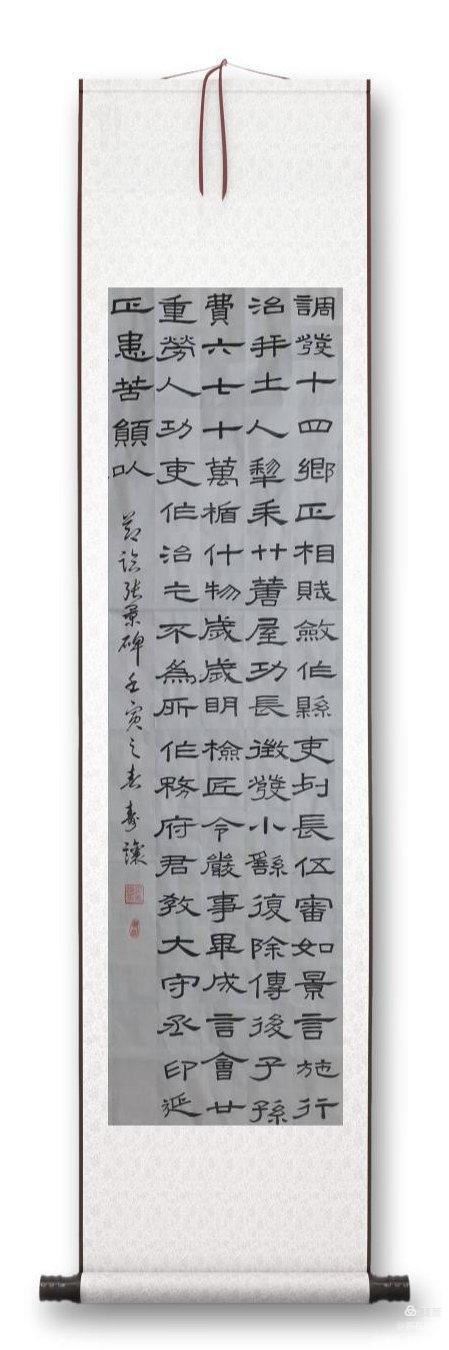 調發十四鄉正相賦斂作縣吏列長伍審如景言施行
治并土人犂耒艹蓐屋功長徵發小繇復除傳後子孫
費六七十萬楯什物歲歲明檢匠令嚴事畢成言會廿
重勞人功吏作治之不為所作務府君教大守丞印延
正患苦願以
節臨張景碑壬寅之春壽讓